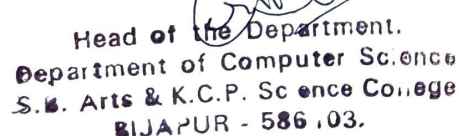 Head of the Department.
Department of Computer Science
S.B. Arts & K.C.P. Science College
BIJAPUR - 586 103.